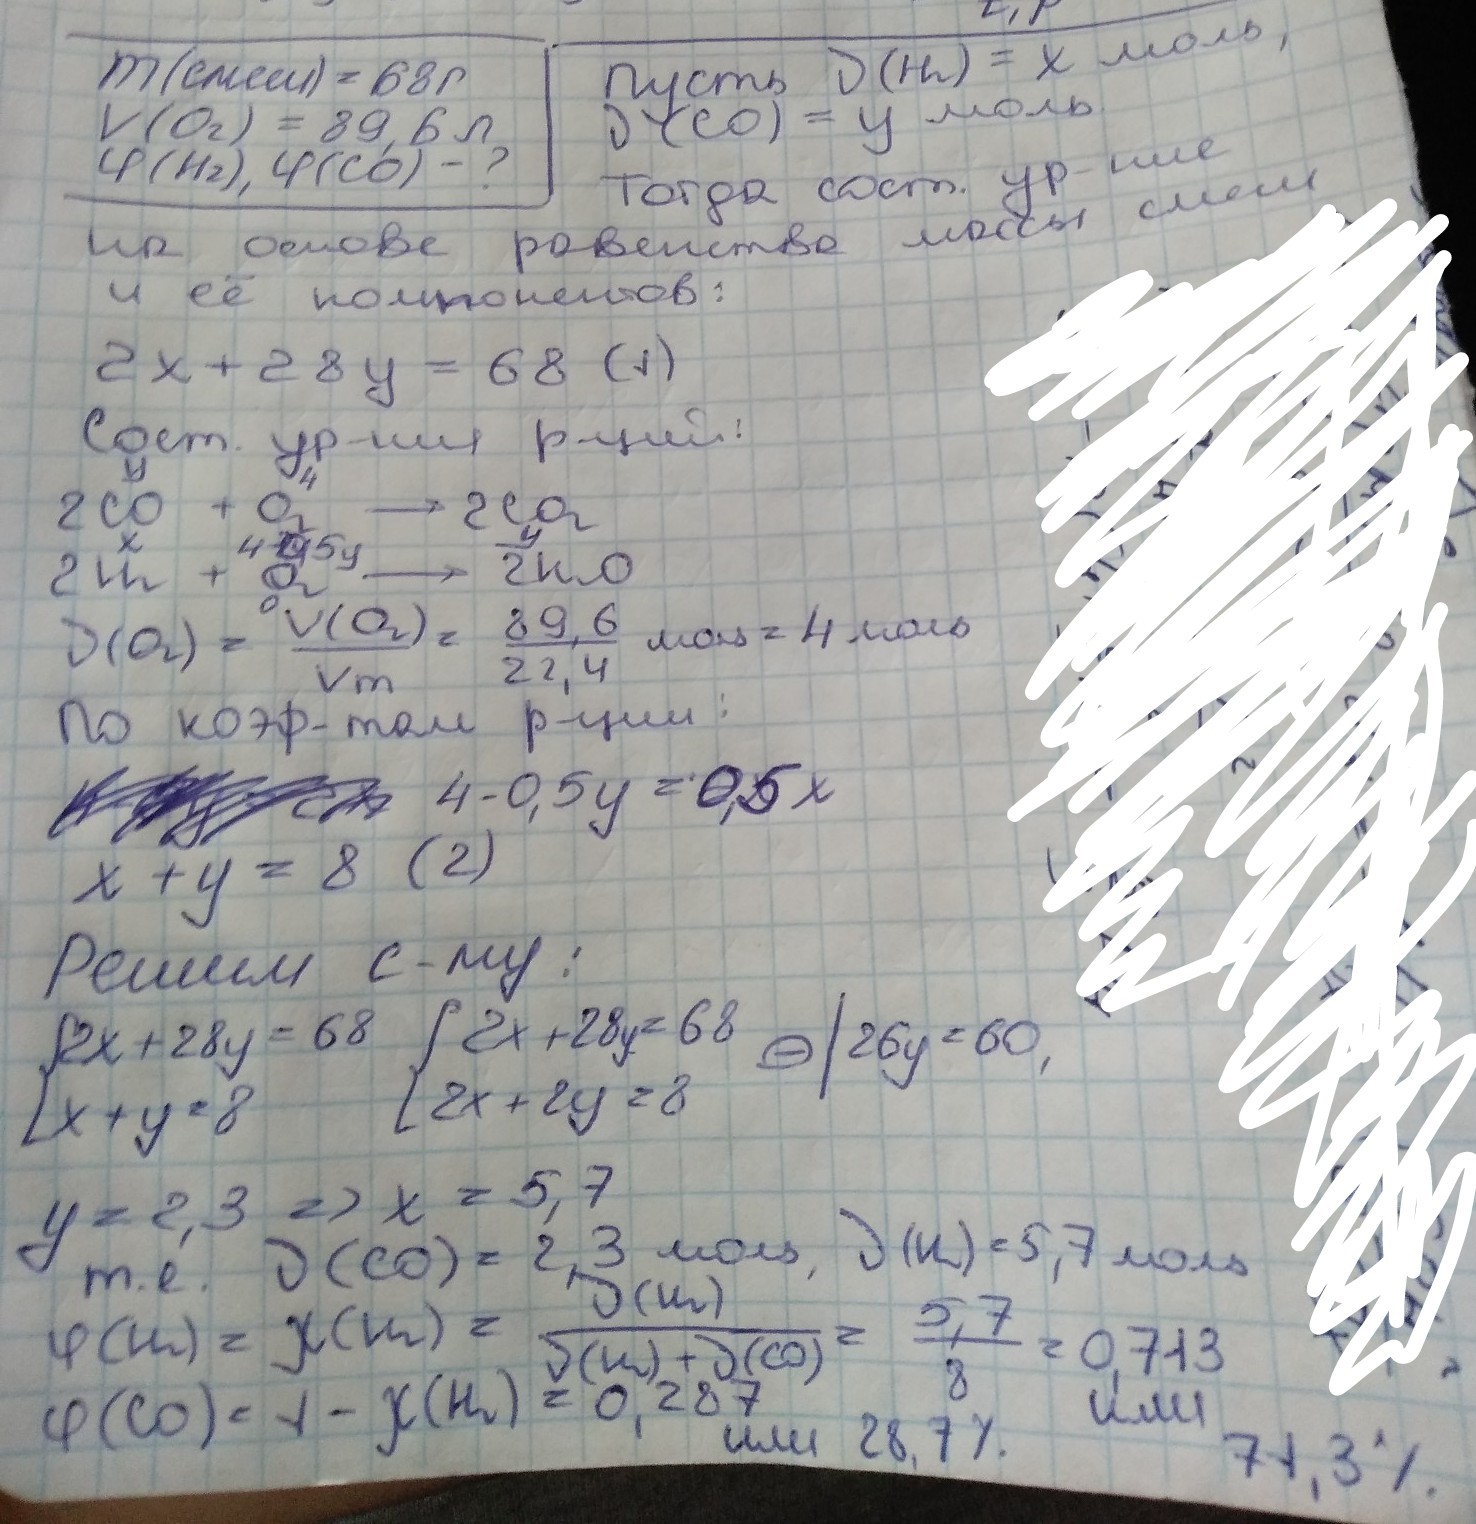 t, p
m(смеси) = 68г
V(O₂) = 89,6 л
φ(H₂), φ(CO) - ?
Пусть ν(H₂) = x моль,
ν(CO) = y моль
Тогда сост. ур-ние
на основе равенства массы смеси
и её компонентов:
2x + 28y = 68 (1)
Сост. ур-ния р-ций:
y 4
2CO + O₂ → 2CO₂
x 4-0,5y y
2H₂ + O₂ → 2H₂O
ν(O₂) = V(O₂)/Vm = 89,6/22,4 моль = 4 моль
По коэф-там р-ции:
4-0,5y = 0,5x
x + y = 8 (2)
Решим с-му:
{2x + 28y = 68 {2x + 28y = 68 ⊖| 26y = 60,
{x + y = 8 {2x + 2y = 8
y = 2,3 => x = 5,7
т.е. ν(CO) = 2,3 моль, ν(H₂) = 5,7 моль
φ(H₂) = χ(H₂) = ν(H₂)/(ν(H₂) + ν(CO)) = 5,7/8 = 0,713
или 71,3%.
φ(CO) = 1 - χ(H₂) = 0,287
или 28,7%.